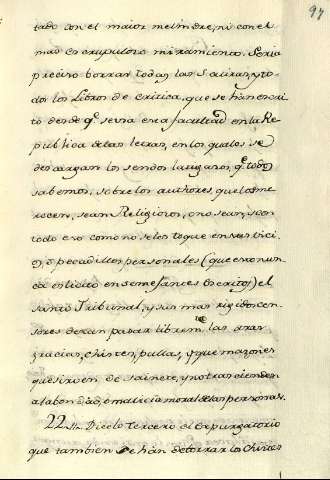 97
tado con el maior melindre, ni con el
mas escrupuloso miramiento. Seria
preciso borrar todas las Satiras, y to-
dos los Libros de critica, que se han escri-
to desde qe. se usa esa facultad en la Re
publica de las letras, en los quales se
descargan los sendos latigazos, qe. todos
sabemos, sobre los authores, que los me
recen, sean Religiosos, o no sean, y con
todo eso como no se los toque en sus vici-
os, ò pecadillos personales (que eso nun-
ca es licito en semejantes Escritos) el
santo Tribunal, y sus mas rigidos cen-
sores dexan pasar libremte. las otras
gracias, chistes, pullas, y que mazones
que sirven de sainete, y no trascienden
a la bondad, o malicia moral de las personas.
22 Dice lo tercero el expurgatorio
que tambien se han de borrar los chistes